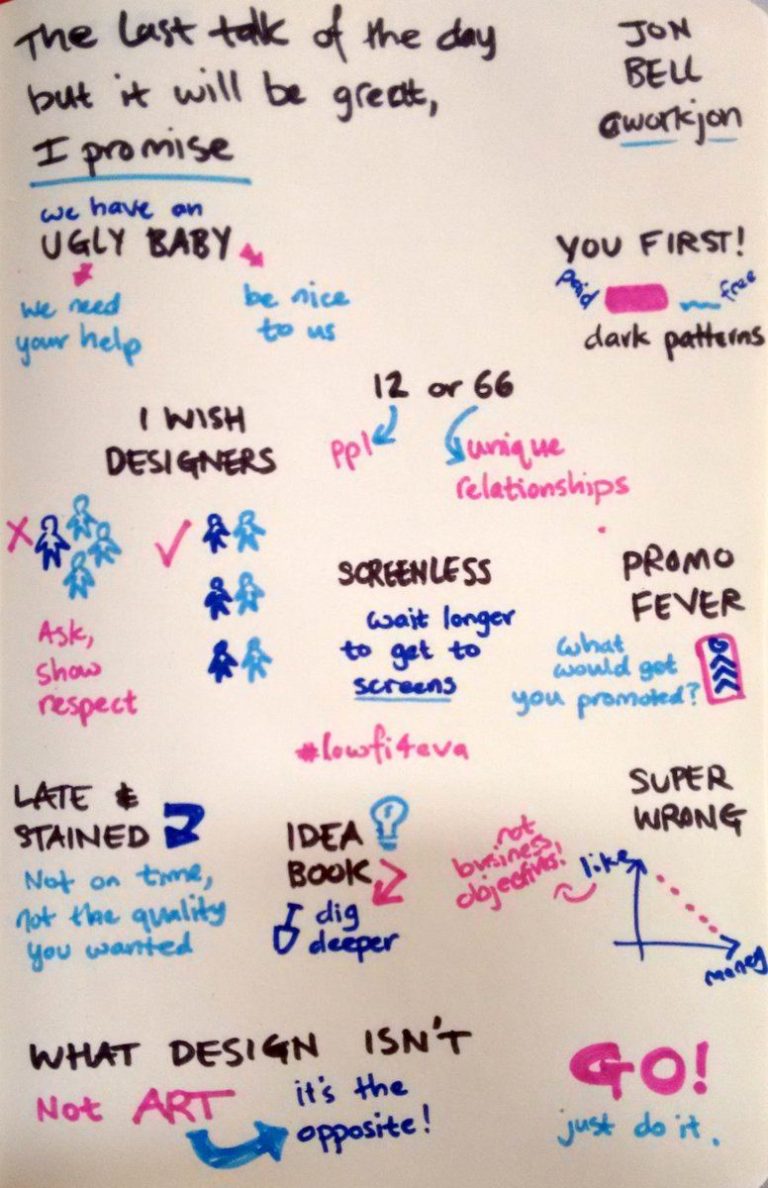 The last talk of the day
but it will be great,
I promise
JON
BELL
@workjon
we have an
UGLY BABY
we need
your help
be nice
to us
YOU FIRST!
paid
free
dark patterns
12 or 66
ppl
unique
relationships
I WISH
DESIGNERS
Ask,
show
respect
SCREENLESS
wait longer
to get to
screens
#lowfi4eva
PROMO
FEVER
what
would get
you promoted?
LATE &
STAINED
Not on time,
not the quality
you wanted
IDEA
BOOK
dig
deeper
SUPER
WRONG
not
business
objectives!
like
money
WHAT DESIGN ISN'T
Not ART
it's the
opposite!
GO!
just do it.